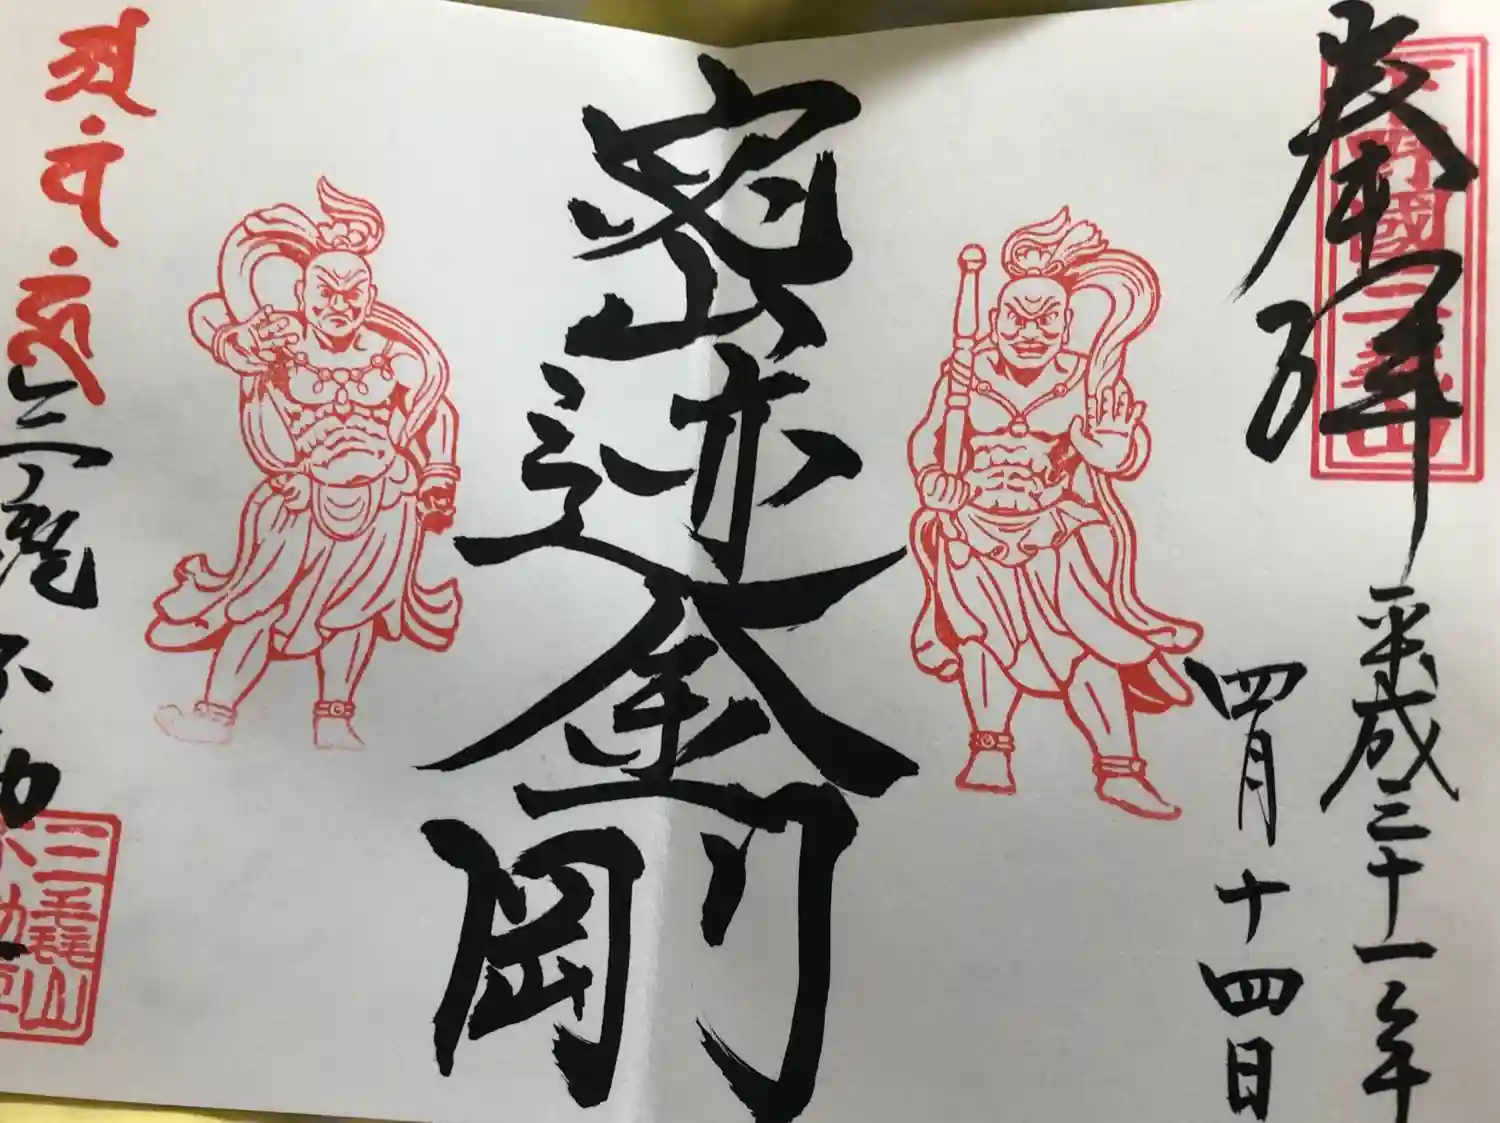 奉拝
下野國三毳山
平成三十一年
四月十四日
密迹金剛
三毳不動
三毳山
不動